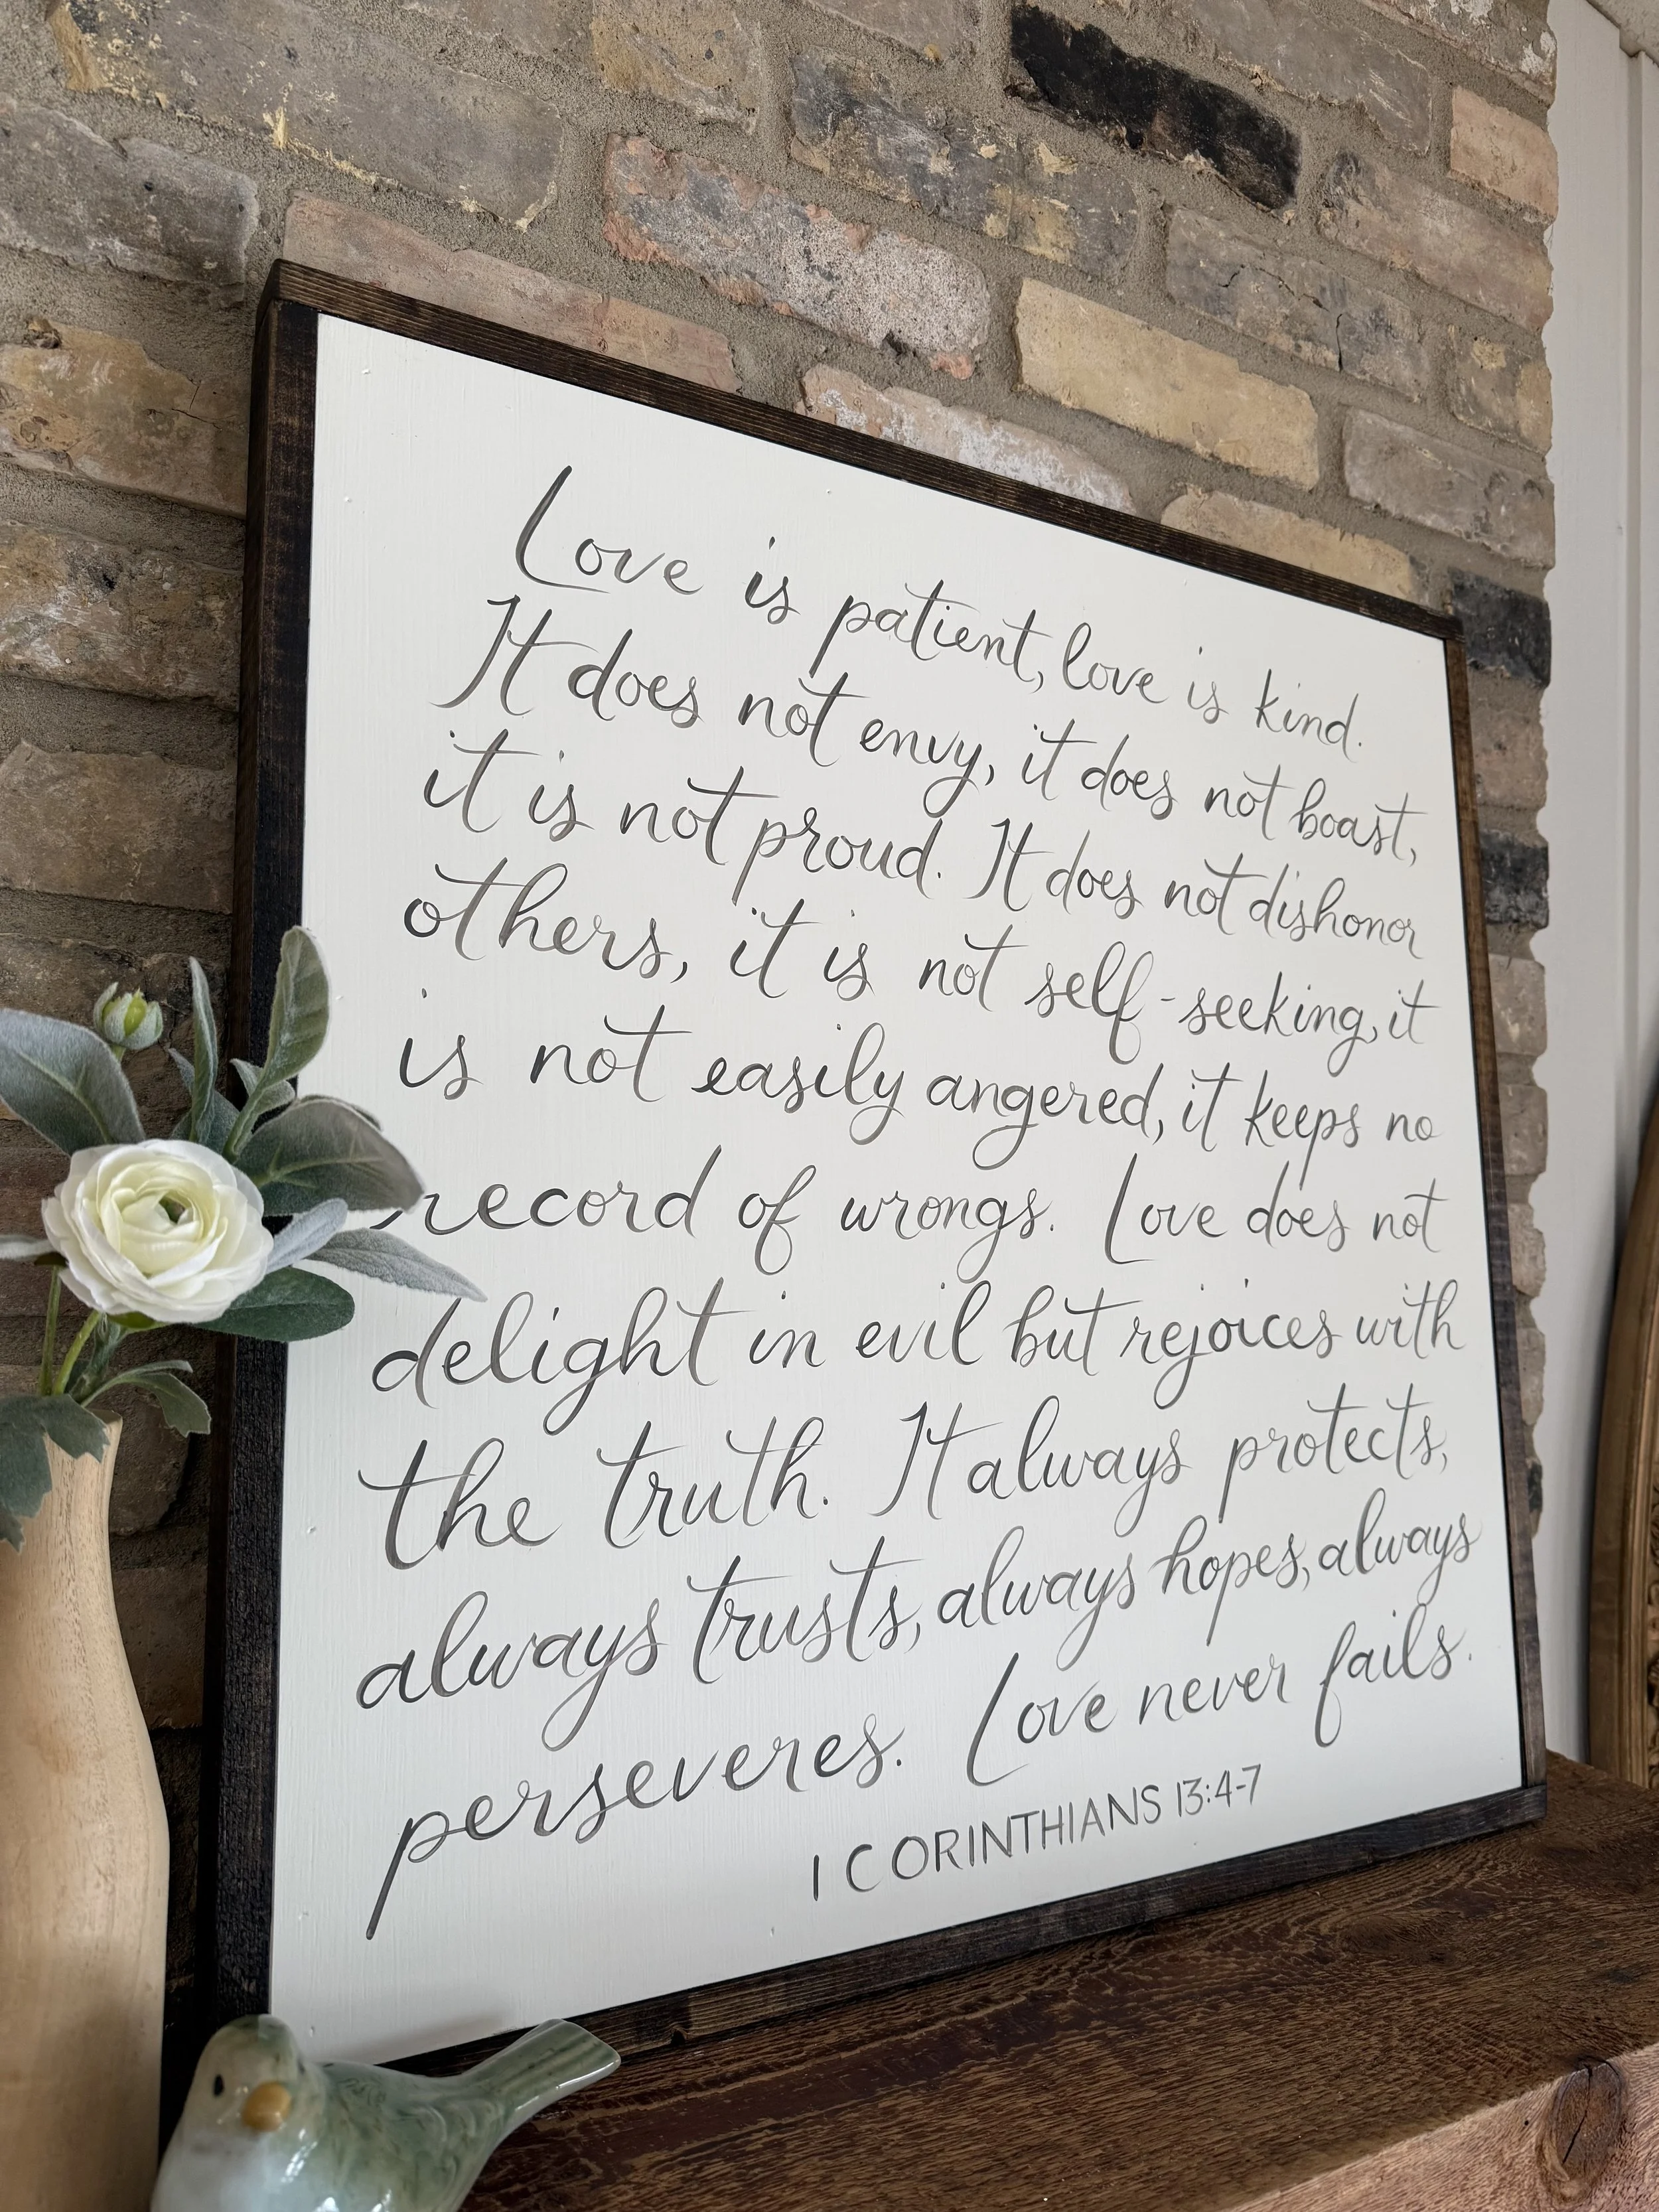 Love is patient, love is kind.
It does not envy, it does not boast,
it is not proud. It does not dishonor
others, it is not self-seeking, it
is not easily angered, it keeps no
record of wrongs. Love does not
delight in evil but rejoices with
the truth. It always protects,
always trusts, always hopes, always
perseveres. Love never fails.
1 CORINTHIANS 13:4-7